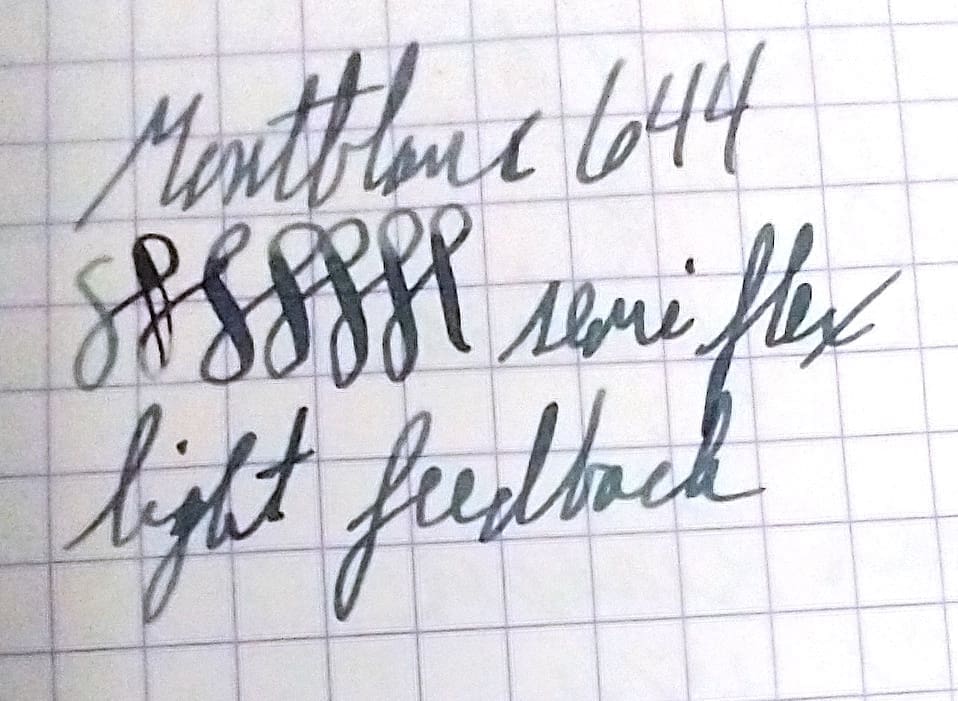 Montblanc 644
semi flex
light feedback